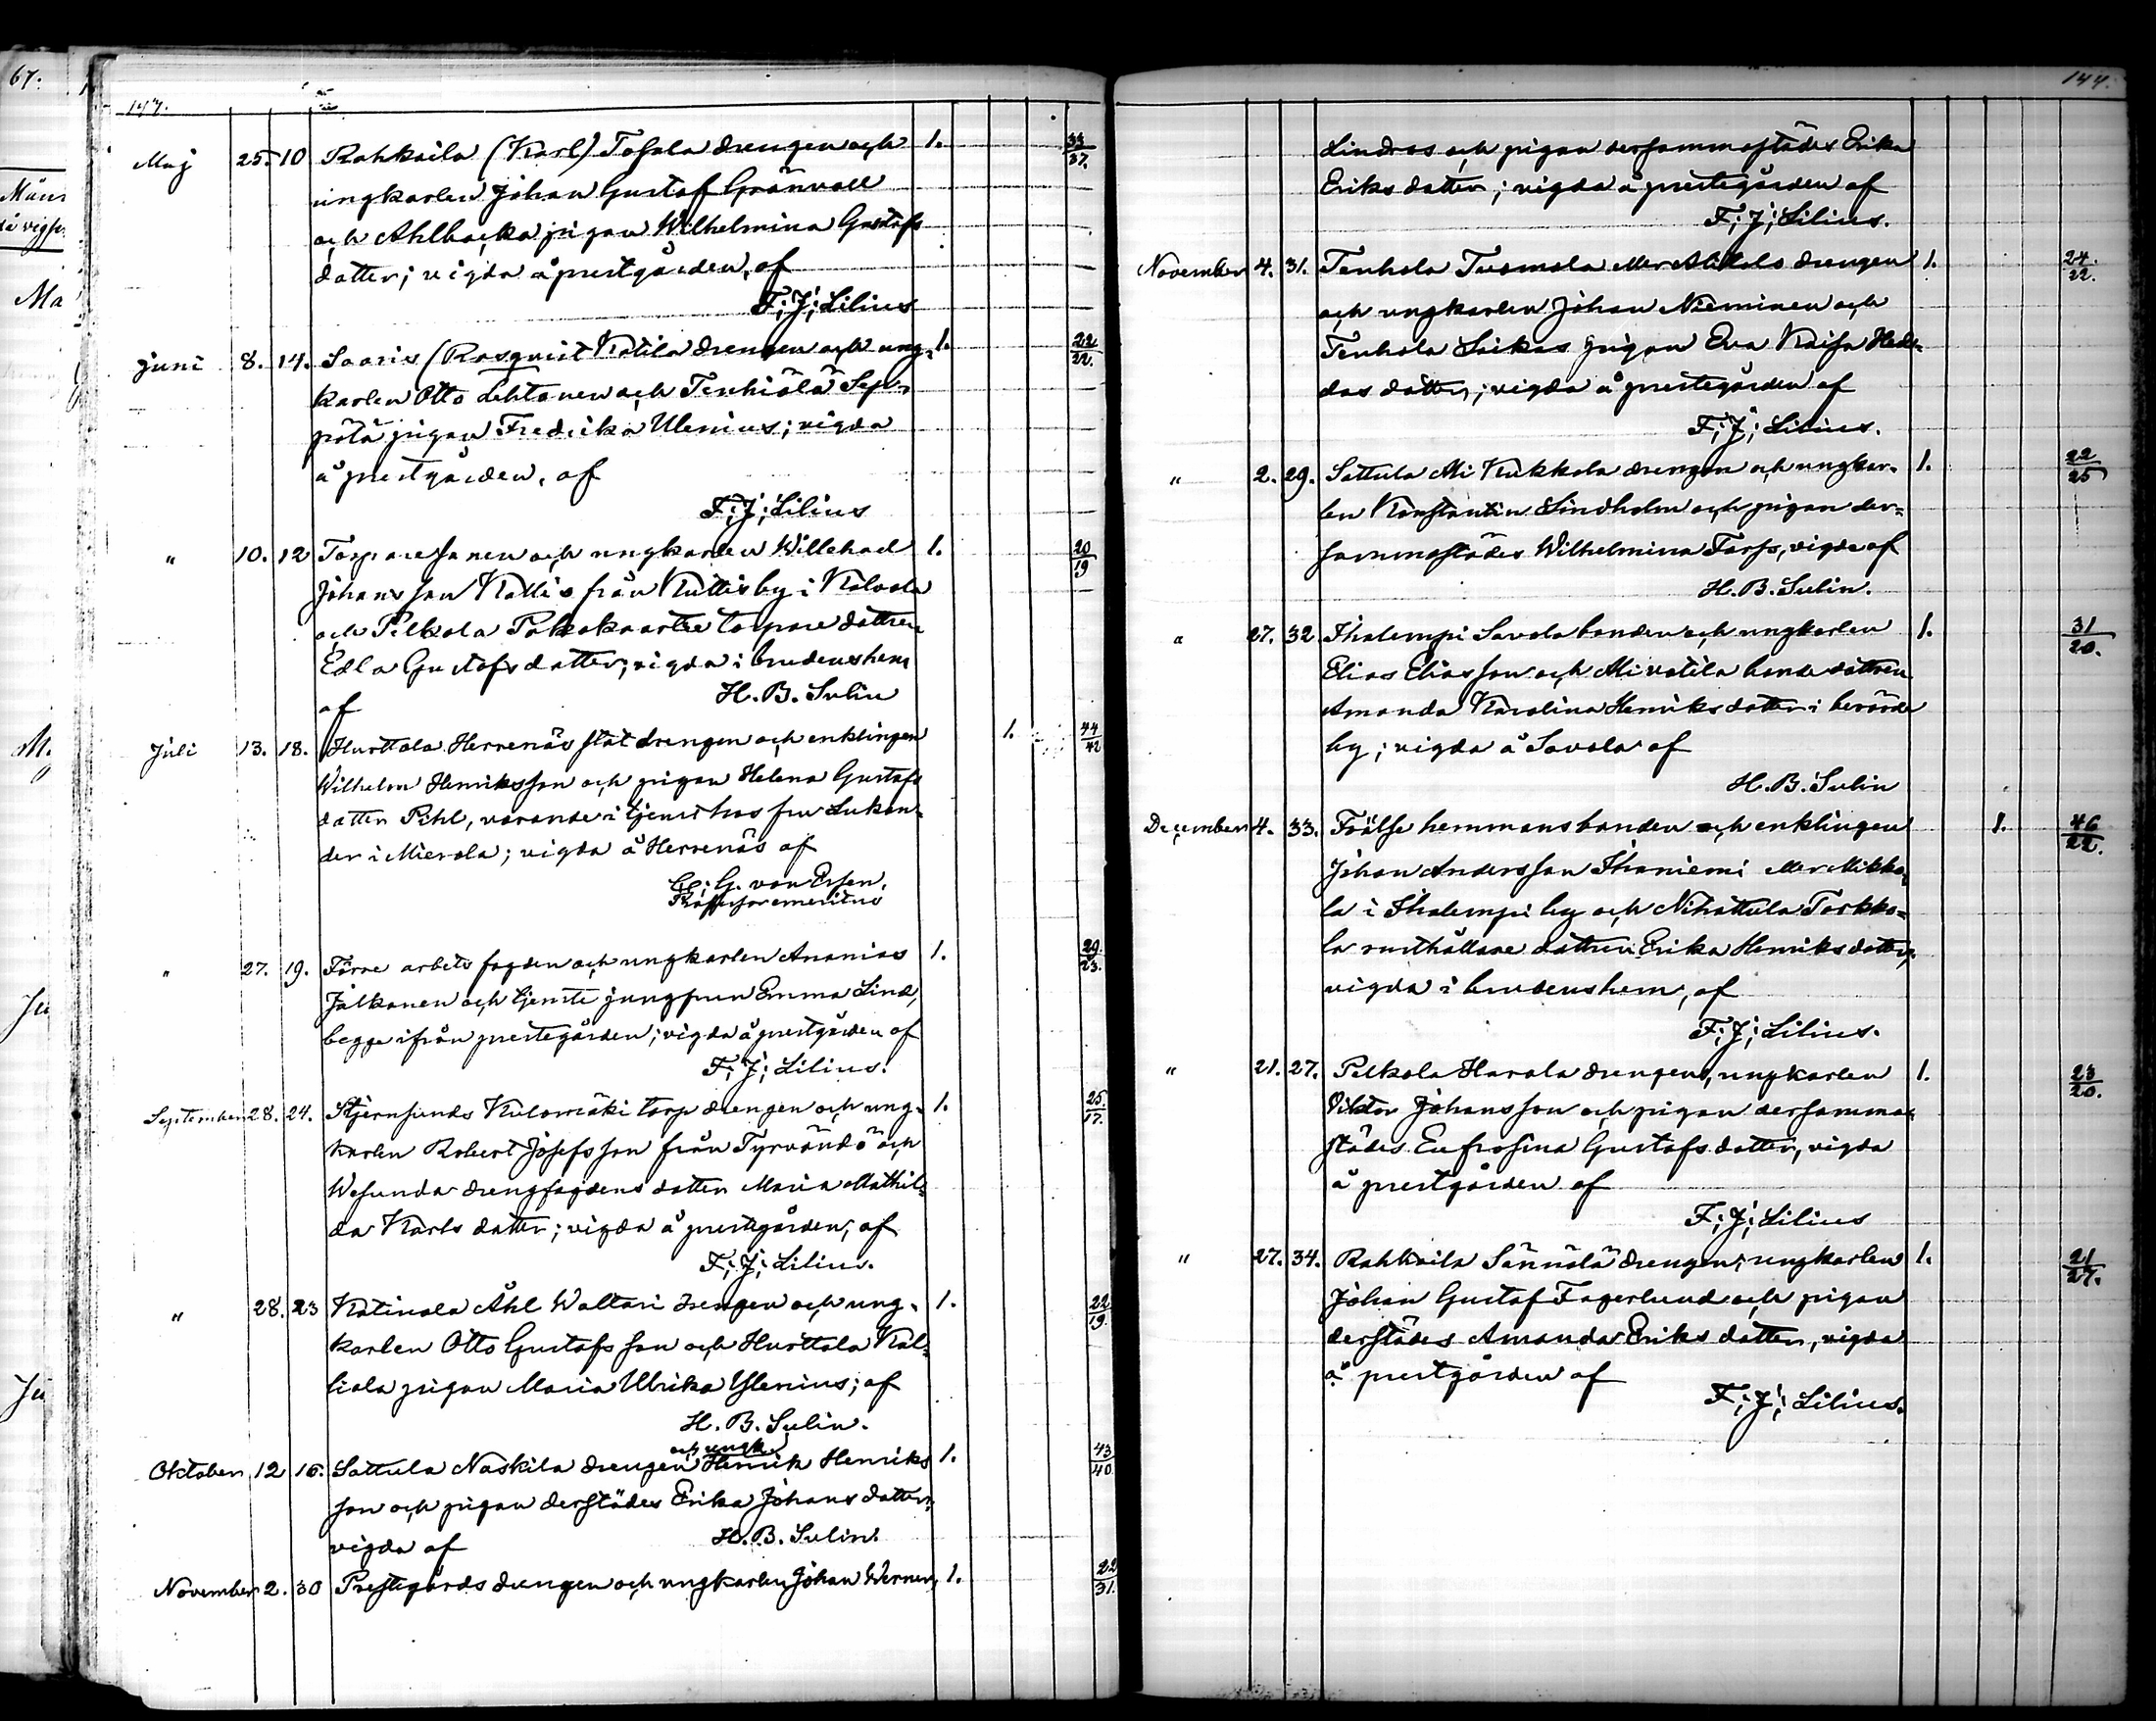 67.
147.
Maj 25. 10 Rahkoila (Karl) Tosala drengen och 1. 33/37.
ungkarlen Johan Gustaf Grönvall
och Ahlbacka pigan Wilhelmina Gustafs
dotter; vigda å prestgården, af
F; J; Lilius
Juni 8. 14. Saaris (Rosqvist Kotila drengen och ung- 1. 22/22.
karlen Otto Lehtonen och Tenhiälä Sep-
pälä pigan Fredrika Ulenius; vigda
å prestgården, af
F; J; Lilius
" 10. 12 Torparesonen och ungkarlen Willehad 1. 20/19
Johansson Kallis från Kuttis by i Kalvola
och Pelkola torpare dottren
Edla Gustafsdotter; vigda i brudens hem
af H. B. Sulin
Juli 13. 18. Hurttala Herrenäs statdrengen och enklingen 1. 44/42
Wilhelm Henriksson och pigan Helena Gustafs
dotter Pihl, varande i tjenst hos fru Lukan-
der i Mierola; vigda å Herrenäs af
G. von Essen,
Professor emeritus
" 27. 19. Förre arbetsfogden och ungkarlen Ananias 1. 29/23.
Jalkanen och tjenste jungfrun Emma Lind,
begge ifrån prestegården; vigda å prestgården af
F; J; Lilius.
September 28. 24. Stjernsunds Kulomäki torp drengen och ung- 1. 25/17.
karlen Robert Josefsson från Tyrvändö och
Wesunda drengfogdens dotter Maria Mathil-
da Karls dotter; vigda å prestegården; af
F; J; Lilius.
" 28. 23 Katinala Åhl Waltari drengen och ung- 1. 22/19.
karlen Otto Gustafsson och Hurttala Kal-
liala pigan Maria Ulrika Ylenius; af
H. B. Sulin.
och ungk.
Oktober 12 16. Sattula Naskila drengen Henrik Henriks 1. 43/40
son och pigan derstädes Erika Johans dotter;
vigda af H. B. Sulin.
November 2. 30 Prestegårds drengen och ungkarlen Johan Werner 1. 22/31.
144.
Lindros och pigan dersammastädes Erika
Eriks dotter; vigda å prestegården af
F; J; Lilius.
November 4. 31. Tenhola Tuomola drengen 1. 24./22.
och ungkarlen Johan Nieminen och
Tenhola Laikas pigan Eva Kaisa Hede-
das dotter; vigda å prestegården af
F; J; Lilius.
" 2. 29. Sattula Ali Kukkola drengen och ungkar- 1. 22/25
len Konstantin Lindholm och pigan der-
sammastädes Wilhelmina Fors, vigda af
H. B. Sulin.
" 27. 32 Ihalempi Savola bonden och ungkarlen 1. 31/20.
Elias Eliasson och Alivatila bonde dottren
Amanda Karolina Henriksdotter i berörde
by; vigda å Savola af
H. B. Sulin
December 4. 33. Frälse hemmans bonden och enklingen 1. 46/22.
Johan Andersson Ihaniemi Mikko-
la i Ihalempi by och Nihattula Torkko-
la rusthållare dottren Erika Henriksdotter,
vigda i brudens hem, af
F; J; Lilius.
" 21. 27. Pelkola Harala drengen, ungkarlen 1. 23/20.
Viktor Johansson och pigan dersamma-
städes Eufrosina Gustafs dotter, vigda
å prestgården af
F; J; Lilius
" 27. 34. Rahkoila Sännälä drengen, ungkarlen 1. 21/27.
Johan Gustaf Fagerlund och pigan
derstädes Amanda Eriks dotter, vigda
å prestgården af
F; J; Lilius.